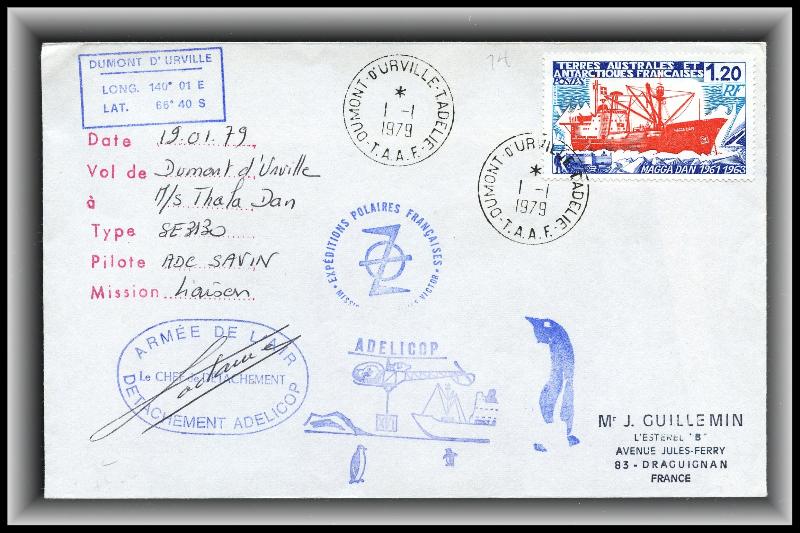 DUMONT D'URVILLE
LONG. 140° 01 E
LAT. 66° 40 S
74
DUMONT-D'URVILLE-T.ADELIE
*
1 -1
1979
T.A.A.F.
TERRES AUSTRALES ET
ANTARCTIQUES FRANÇAISES
POSTES
1.20
RF
MAGGA DAN 1961 1963
DUMONT-D'URVILLE-T.ADELIE
*
1 -1
1979
T.A.A.F.
Date 19.01.79
Vol de Dumont d'Urville
à M/S Thala Dan
Type SE3130
Pilote ADC SAVIN
Mission Liaison
EXPÉDITIONS POLAIRES FRANÇAISES
VICTOR
ARMÉE DE L'AIR
Le CHEF de DÉTACHEMENT
DETACHEMENT ADELICOP
ADELICOP
Mr J. GUILLEMIN
L'ESTEREL "B"
AVENUE JULES-FERRY
83 - DRAGUIGNAN
FRANCE